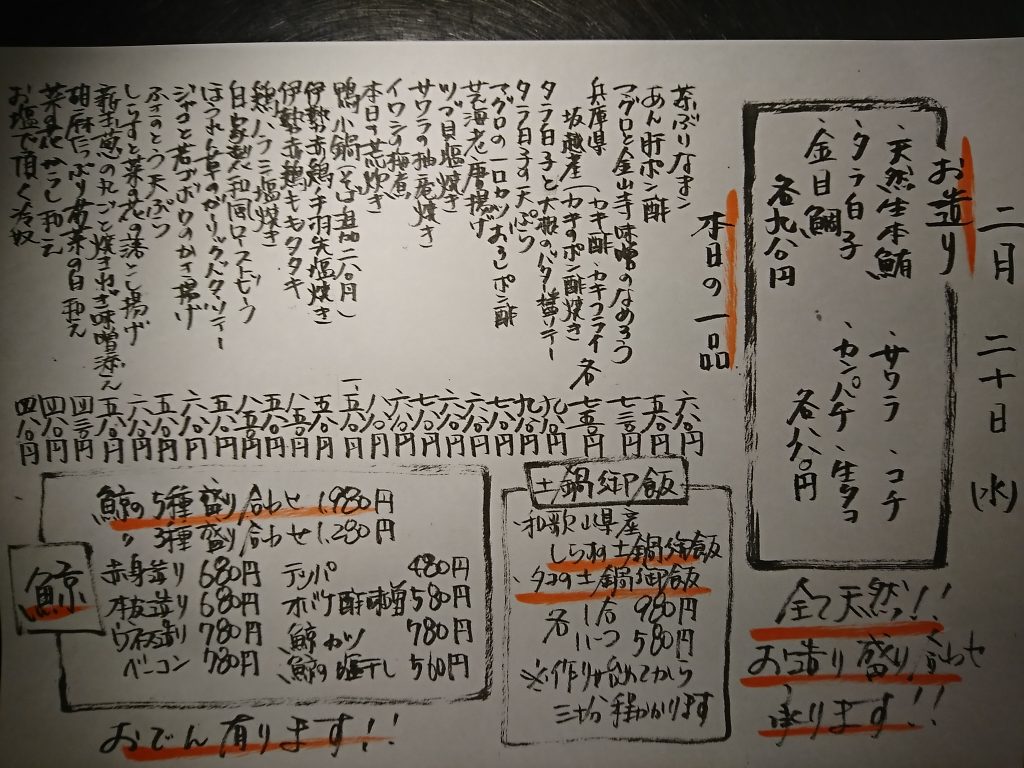 二月 二十日 (水)
お造り
・天然生本鮪 ・サワラ ・コチ
・タラ白子 ・カンパチ ・生タコ
・金目鯛
各九八〇円 各八八〇円
全て天然!!
お造り盛り合わせ
承ります!!
本日の一品
茶ぶりなまこ 六八〇円
あん肝ポン酢 五八〇円
マグロと金山寺味噌のなめろう 七三〇円
兵庫県
坂越産(カキ酢・カキフライ・カキのポン酢焼き 各 七五〇円
タラ白子と大根のバター醤油ソテー 九八〇円
タラ白子の天ぷら 九八〇円
マグロの一口カツおろしポン酢 七八〇円
芝海老唐揚げ 六八〇円
ツブ貝塩焼き
サワラの柚庵焼き 七八〇円
イワシの梅煮 六八〇円
本日の煮炊き 八八〇円
鴨小鍋(そば 一、二八〇円
伊勢赤鶏手羽先塩焼き 五八〇円
伊勢赤鶏ももタタキ 八八〇円
鶏ハラミ塩焼き 五八〇円
自家製和同ローストビーフ 八八〇円
ほうれん草のガーリックバターソテー
ジャコと若ゴボウのかき揚げ 六八〇円
ふきのとう天ぷら 五八〇円
しらすと菜の花の落とし揚げ 六八〇円
新玉葱の丸ごと焼きねぎ味噌添え 五八〇円
胡麻たっぷり春菊の白和え 四三〇円
菜の花からし和え 四八〇円
お塩で頂く冷奴 四八〇円
土鍋御飯
和歌山県産
しらすの土鍋御飯
タコの土鍋御飯
各 1合 980円
ハーフ 580円
※作り始めてから
三十分程かかります
鯨
鯨の5種盛り合わせ 1,980円
〃 3種盛り合わせ 1,280円
赤身造り 680円 テッパ 480円
本皮造り 680円 オバケ酢味噌 580円
ウネス造り 780円 鯨カツ 780円
ベーコン 780円 鯨の塩干し 560円
おでん有ります!!